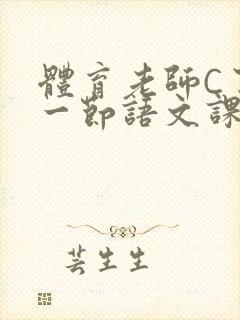 體育老師C
一節語文課
芸生生